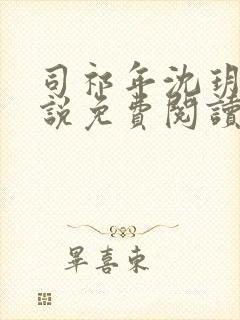 司祁年沈玥
說免費閱讀
畢喜東